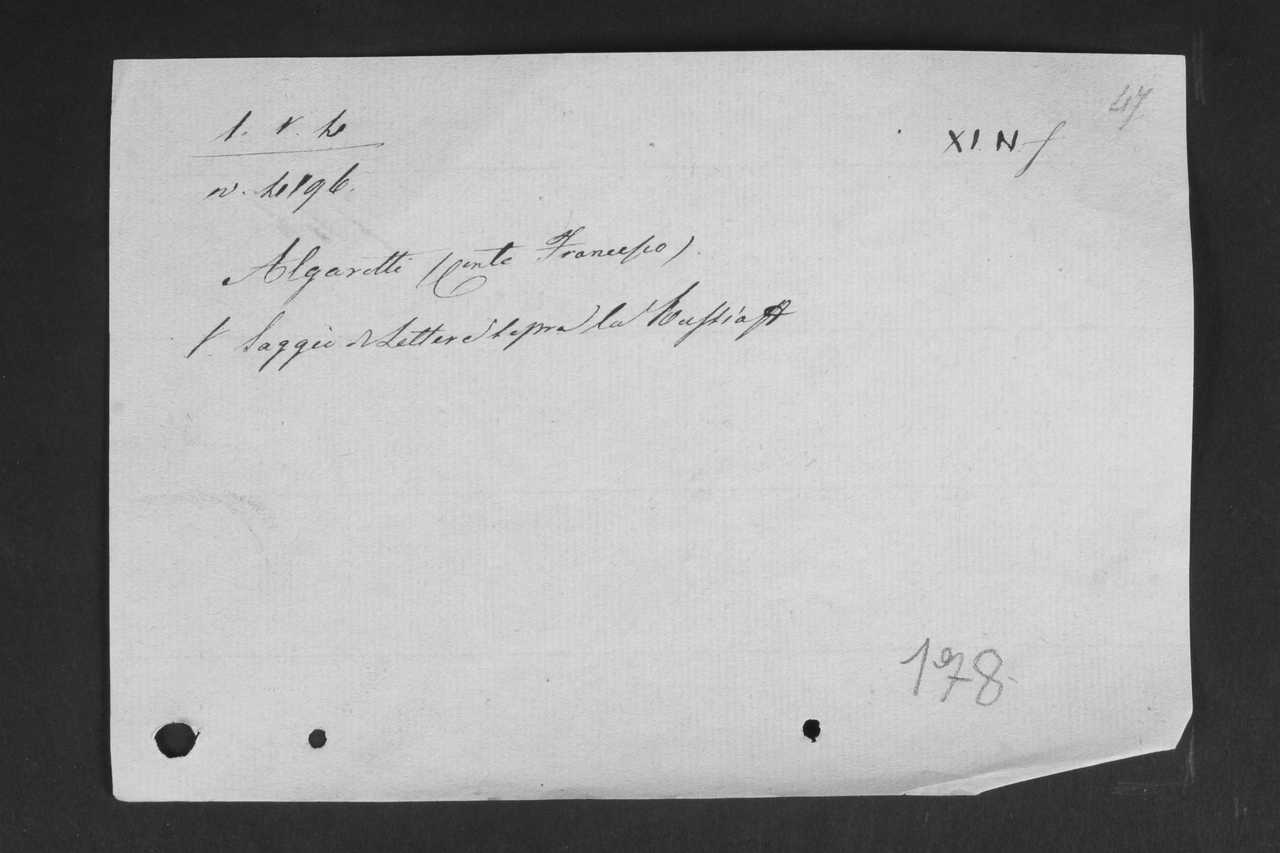 47
XI. N. f
1. V. 4
n. 4196.
Algarotti (Conte Francesco)
V. Saggio di Lettere sopra la Russia
178.